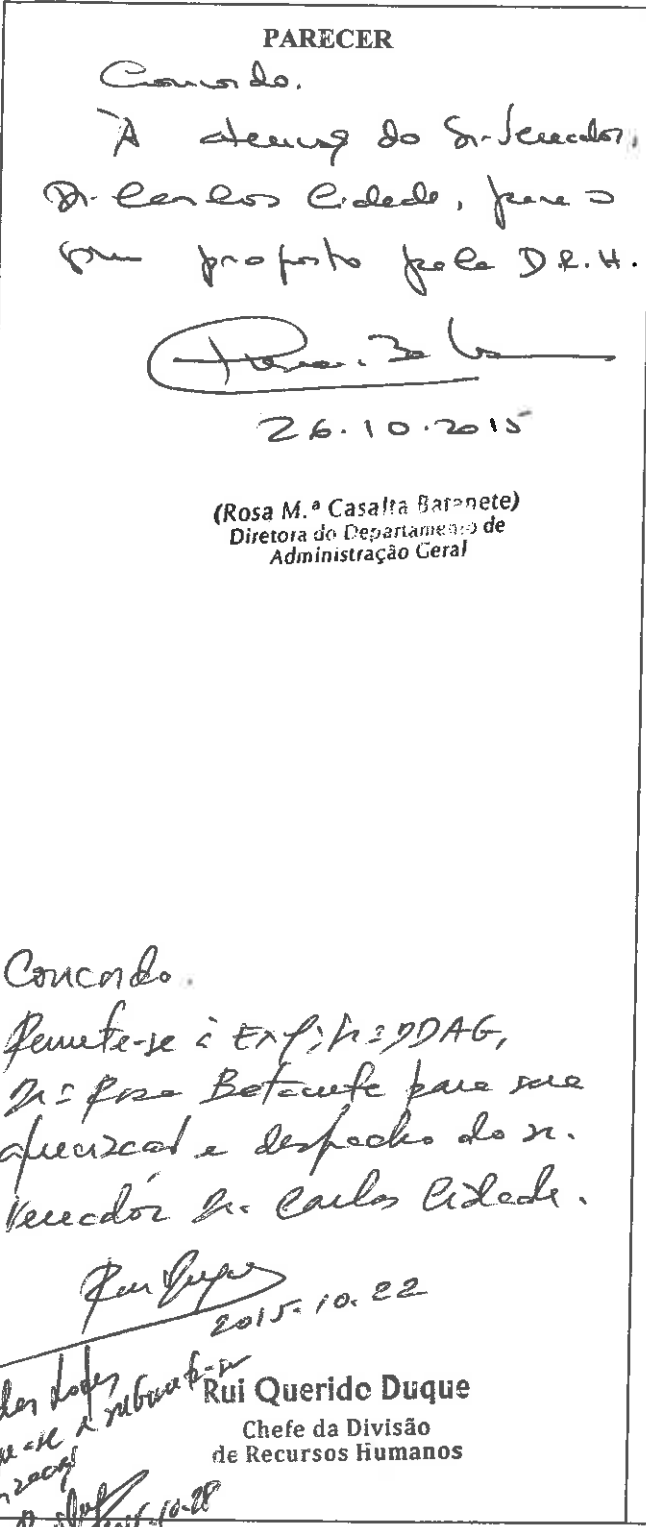 PARECER
Concordo.
À atenção do Sr. Vereador,
Dr. Carlos Cidade, para o
fim proposto pela D.R.H.
26.10.2015
(Rosa M.ª Casalta Batanete)
Diretora do Departamento de
Administração Geral
Concordo.
Remete-se à Exª Srª DDAG,
Drª Rosa Batanete para sua
apreciação e despacho do Sr.
Vereador Dr. Carlos Cidade.
2015.10.22
Rui Querido Duque
Chefe da Divisão
de Recursos Humanos